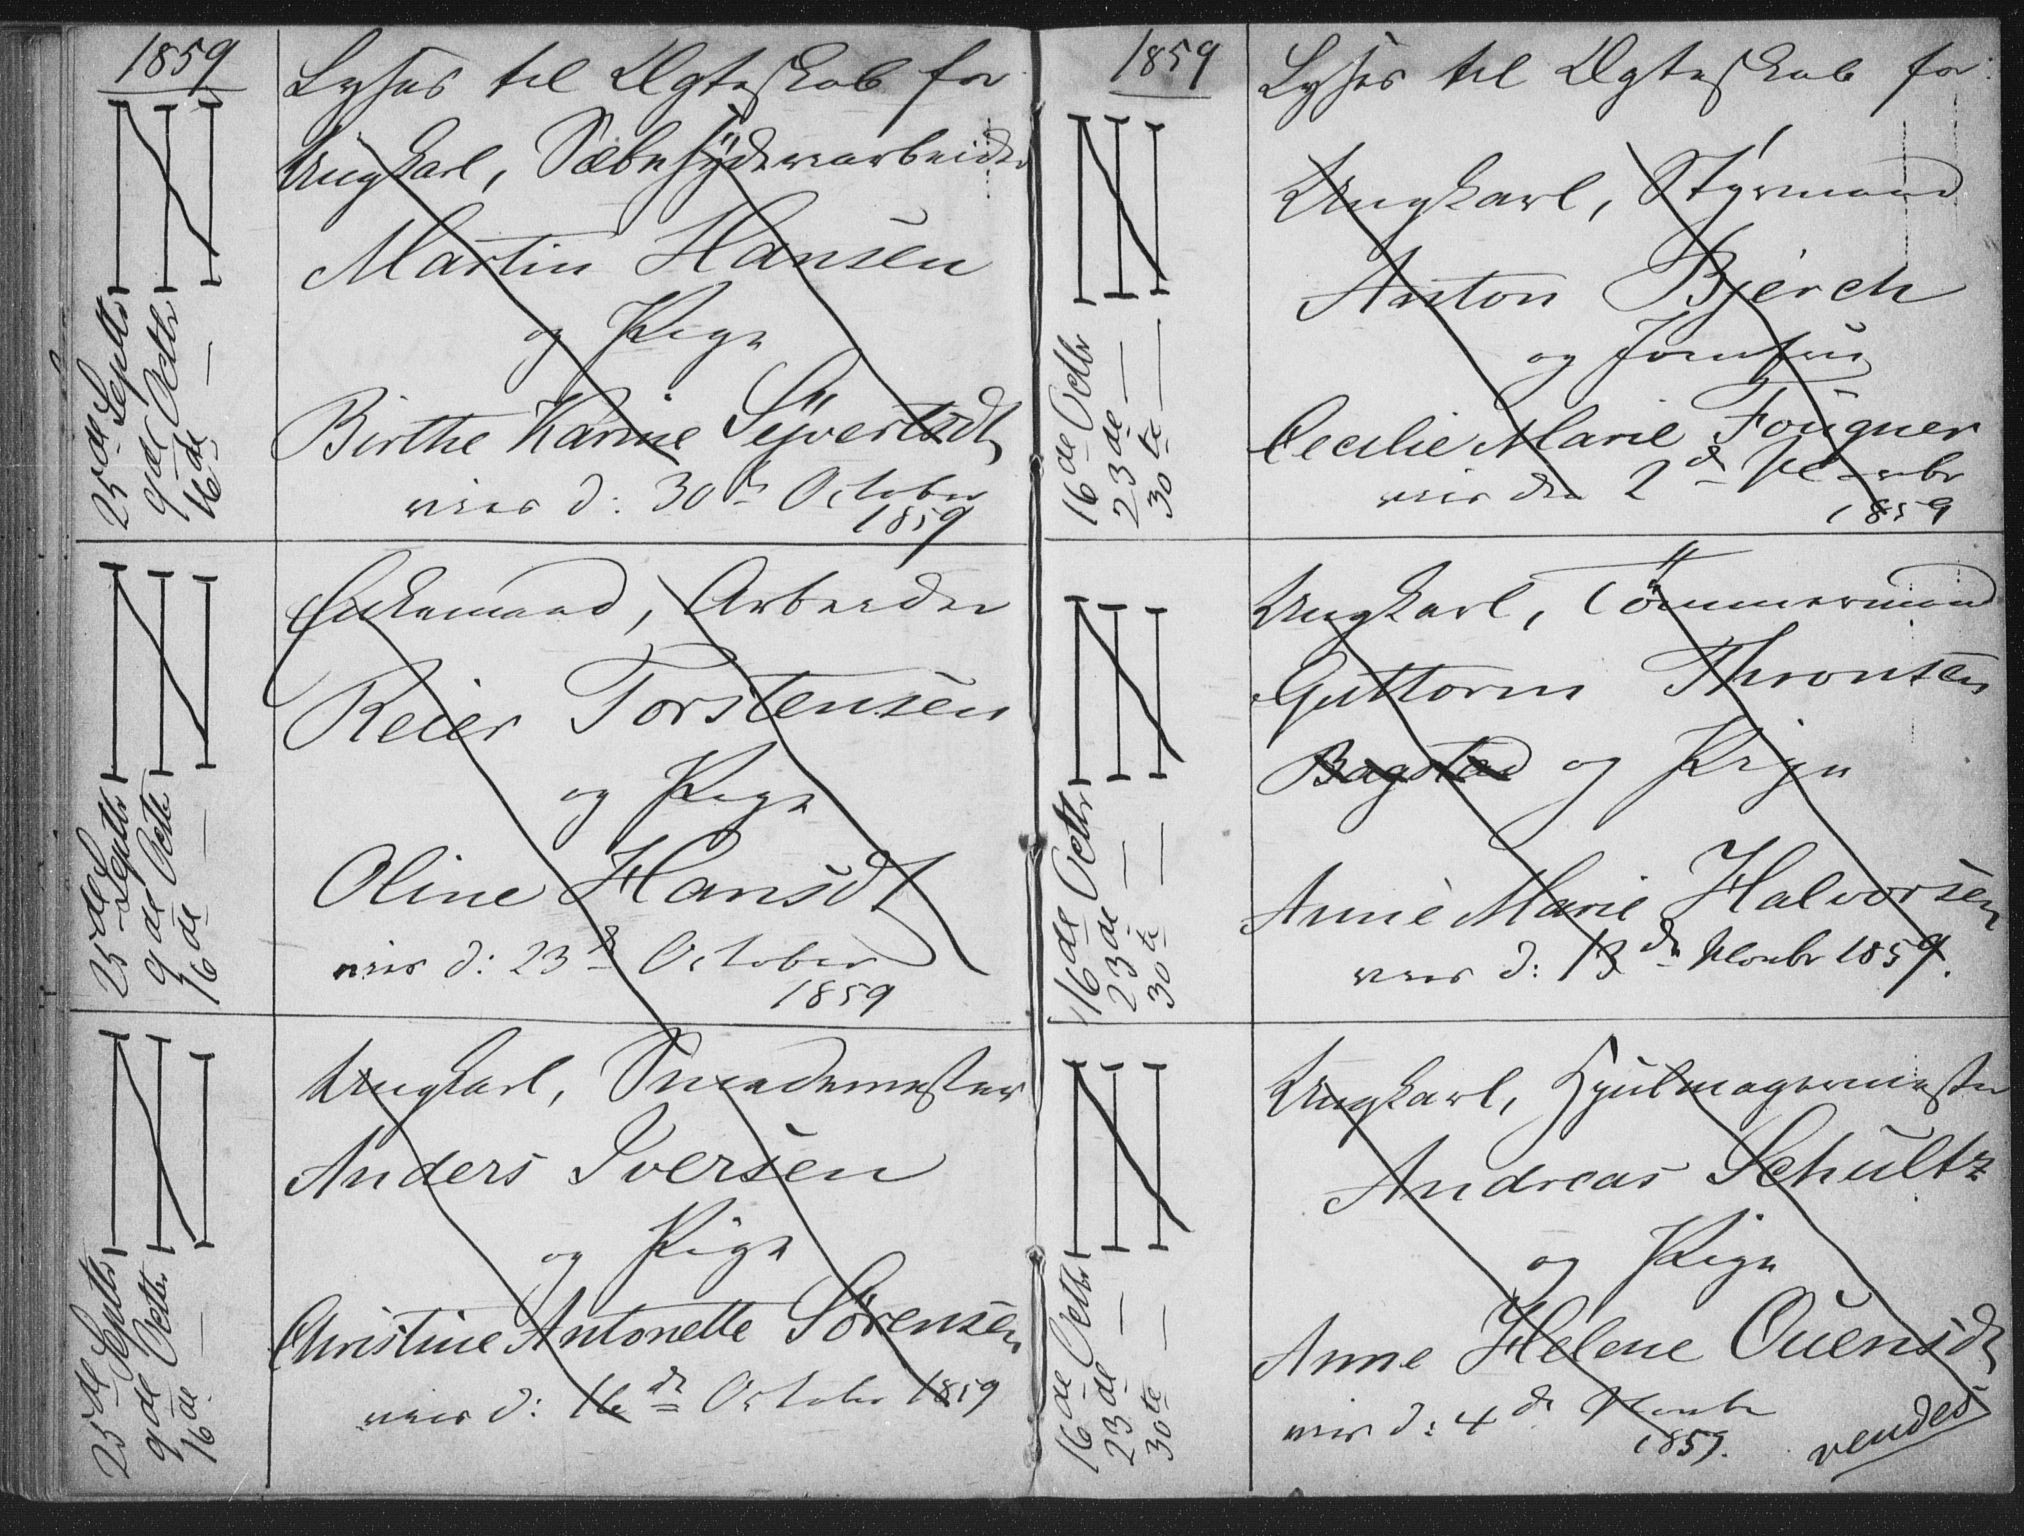 1859
Lyses til Ægteskab for
Ungkarl, Sæbesyderarbeider
Martin Hansen
og Pige
Birthe Karine Syvertsdt
vies d: 30te October
1859
25de Septbr
9de Octbr
16de —
Enkemand, Arbeider
Reier Torstensen
og Pige
Oline Hansdt
vies d: 23de October
1859
25de Septbr
9de Octbr
16de —
Ungkarl, Smedemester
Anders Iversen
og Pige
Christine Antonette Sörensen
vies d: 16de October 1859
25de Septbr
9de Octbr
16de —
1859
Lyses til Ægteskab for:
Ungkarl, Styrmand
Anton Bjerch
og Jomfru
Cecilie Marie Fougner
vies den 2de Novembr
1859
16de Octbr
23de —
30te —
Ungkarl, Tömmermand
Guttorm Thronsen
Bagstad og Pige
Anne Marie Halvorsen
vies d: 13de Novbr 1859.
16de Octbr
23de —
30te —
Ungkarl, Hjulmagermester
Andreas Schultz
og Pige
Anne Helene Ouensdt
vies d: 4de Novbr
1859.
vendes
16de Octbr
23de —
30te —